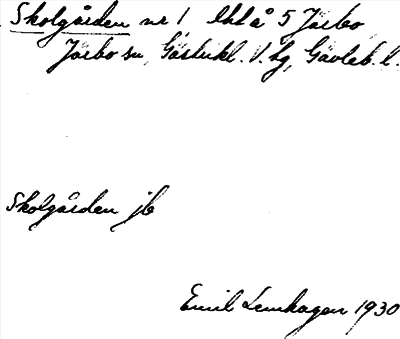 Skolgården nr 1 lhl å 5 Järbo
Järbo sn, Gästrikl. V. hg, Gävleb. l.
Skolgården jb
Emil Lemhagen 1930